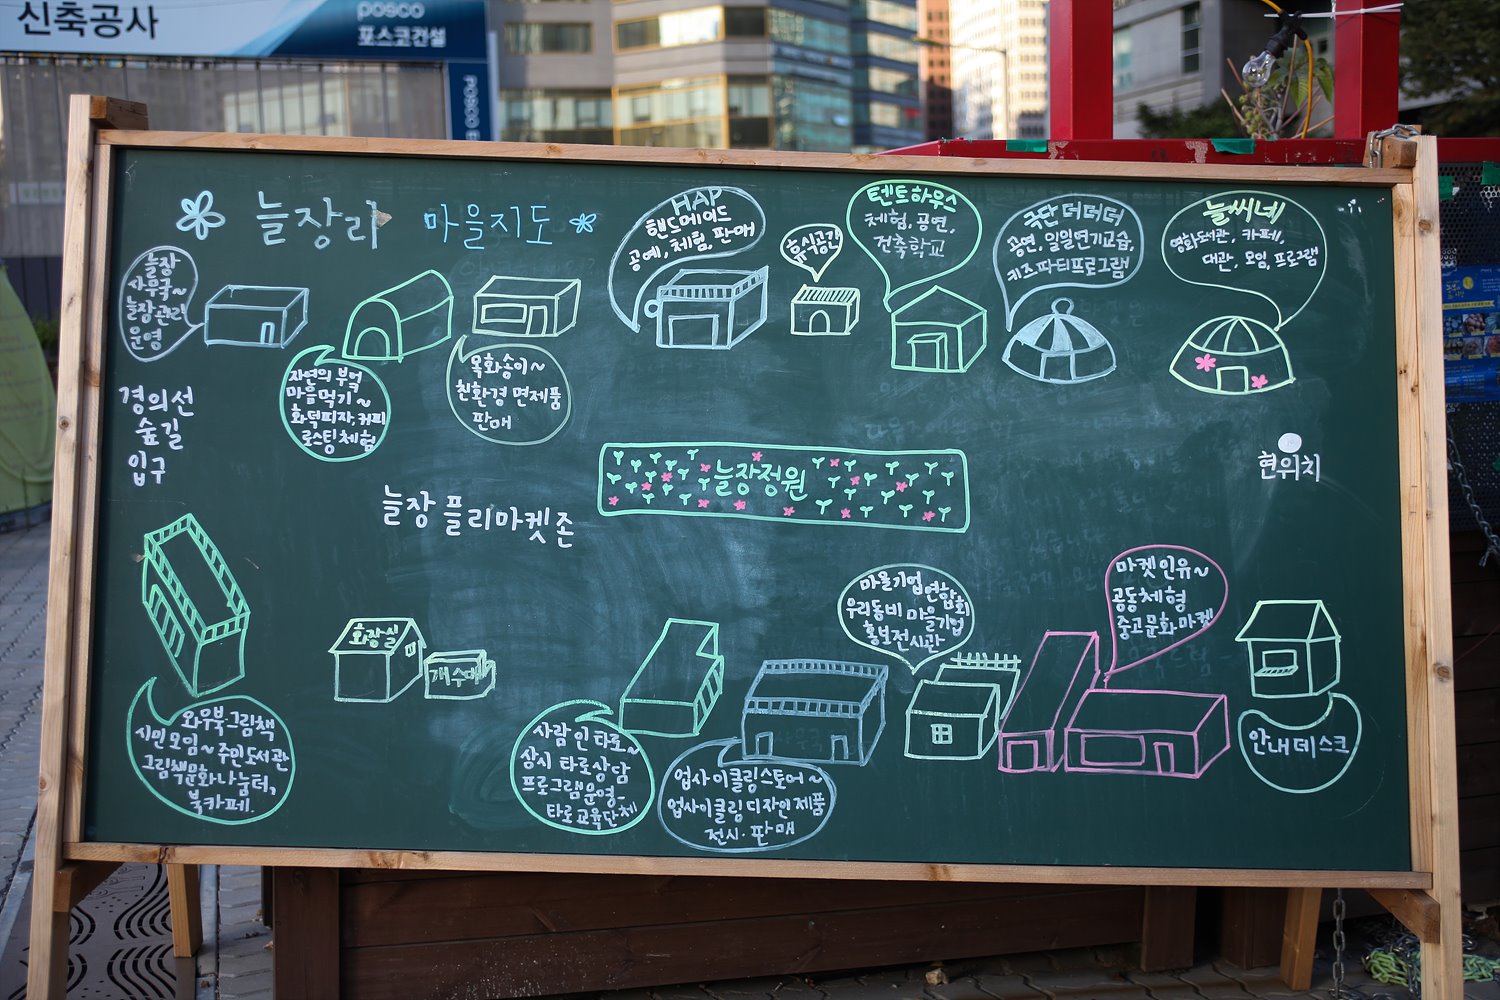 신축공사
posco
포스코건설
posco
늘장라 마을지도
늘장
사무국~
늘장관리
운영
자연의 부엌
마음먹기~
화덕피자, 커피
로스팅체험
목화송이~
친환경 면제품
판매
HAP
핸드메이드
공예, 체험, 판매
휴식공간
텐트하우스
체험, 공연,
건축학교
극단 더더더
공연, 일일연기교습,
키즈파티프로그램
늘씨네
영화도서관, 카페,
대관, 모임, 프로그램
경의선
숲길
입구
늘장 플리마켓 존
늘장정원
현위치
와우북그림책
시민모임~ 주민도서관
그림책문화나눔터,
북카페.
화장실
개수대
사람인타로~
상시 타로상담
프로그램운영-
타로교육단체
업사이클링스토어~
업사이클링디자인제품
전시·판매
마을기업연합회
우리동비 마을기업
홍보전시관
마켓인유~
공동체형
중고문화마켓
안내데스크